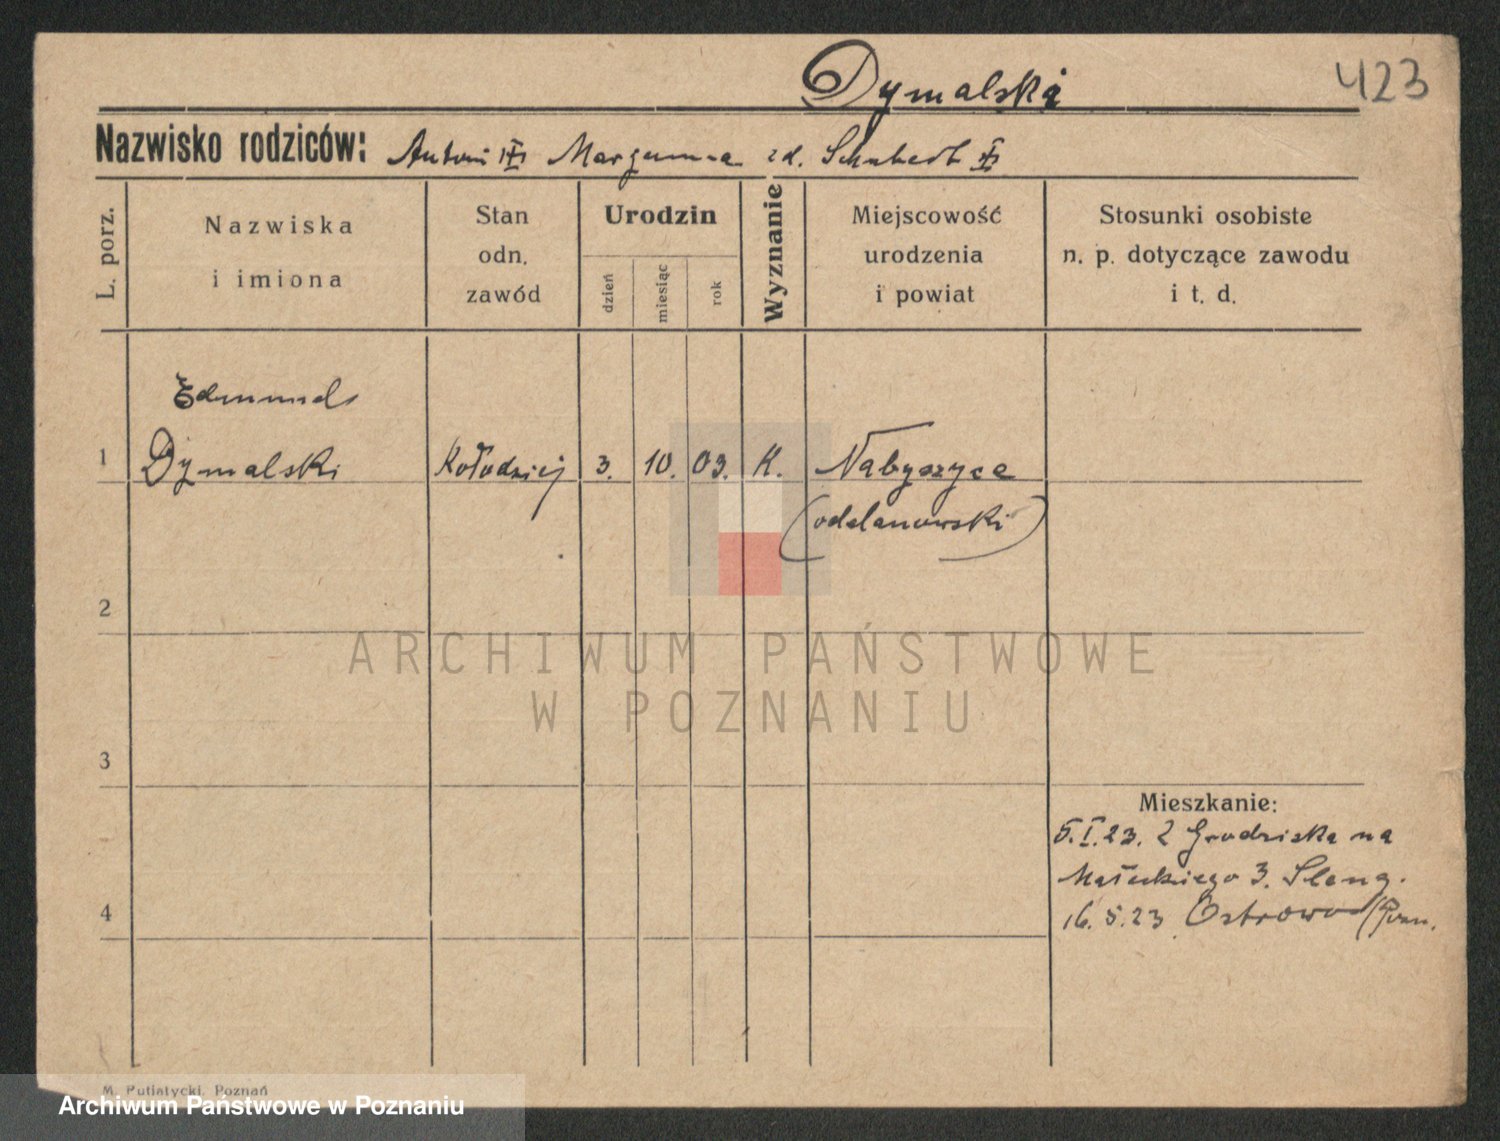 423
Dymalski
Nazwisko rodziców: Antoni Marganna zd. Schubert
L. porz.
Nazwiska
i imiona
Stan
odn.
zawód
Urodzin
dzień
miesiąc
rok
Wyznanie
Miejscowość
urodzenia
i powiat
Stosunki osobiste
n. p. dotyczące zawodu
i t. d.
Edmund
1 Dymalski Kołodziej 3. 10. 03. K. Nabyszyce
(odolanowski)
2
ARCHIWUM PAŃSTWOWE
W POZNANIU
3
Mieszkanie:
5.I.23. Z Grodziska na
Małeckiego 3. Slang.
4
16.5.23 Ostrowo (Pozn.
M. Putiatycki, Poznań
Archiwum Państwowe w Poznaniu